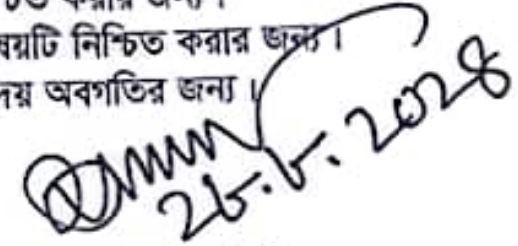 করার জন্য।
ষয়টি নিশ্চিত করার জন্য।
দয় অবগতির জন্য।
২৮.৮.২০২৪